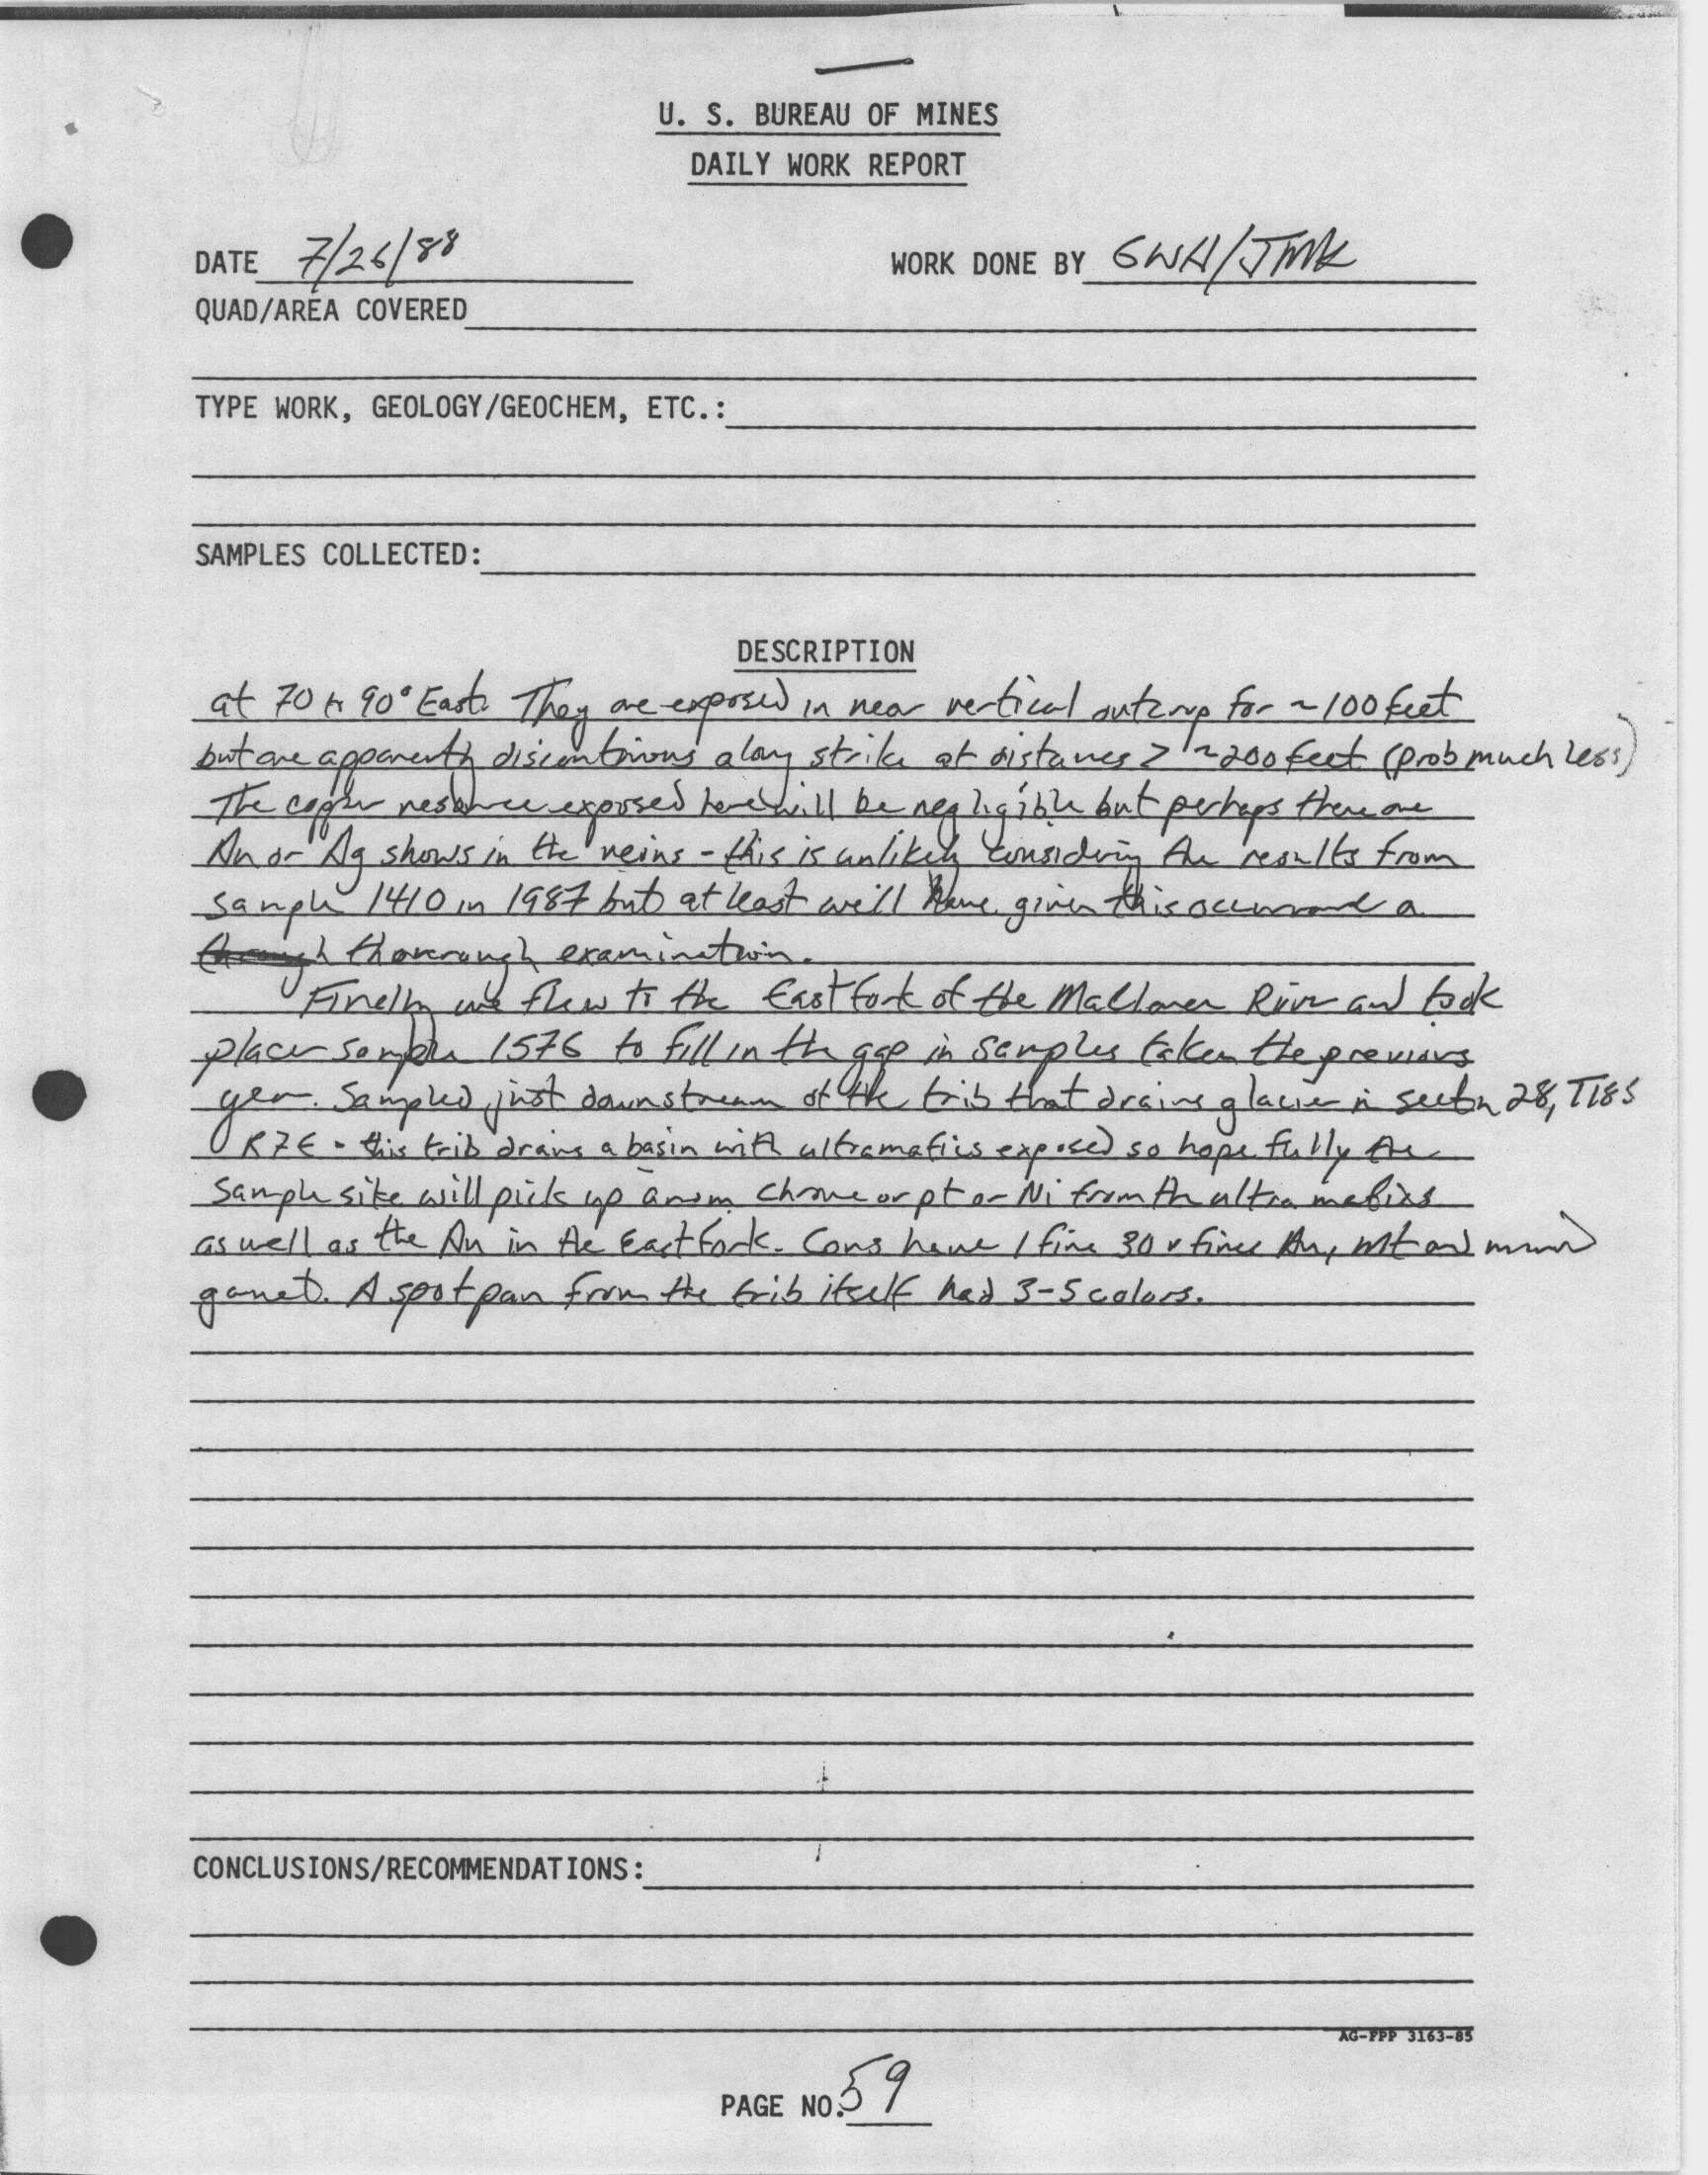 U. S. BUREAU OF MINES
DAILY WORK REPORT
DATE 7/26/88 WORK DONE BY GWH/JMK
QUAD/AREA COVERED
TYPE WORK, GEOLOGY/GEOCHEM, ETC.:
SAMPLES COLLECTED:
DESCRIPTION
at 70 to 90° East. They are exposed in near vertical outcrop for ~100 feet
but are apparently discontinious along strike at distances > ~200 feet (prob much less)
The copper resource exposed here will be negligible but perhaps there are
Au or Ag shows in the veins - this is unlikely considering the results from
sample 1410 in 1987 but at least we'll have given this occurrence a
through thorough examination.
Finally we flew to the East fork of the Maclaren River and took
placer sample 1576 to fill in the gap in samples taken the previous
year. Sampled just downstream of the trib that drains glacier in section 28, T18S
R7E - this trib drains a basin with ultramafics exposed so hopefully the
sample site will pick up anom chrome or pt or Ni from the ultramafics
as well as the Au in the East Fork. Cons have 1 fine 30 v fines Au, mt and
garnet. A spot pan from the trib itself had 3-5 colors.
CONCLUSIONS/RECOMMENDATIONS:
AG-FPP 3163-85
PAGE NO. 59